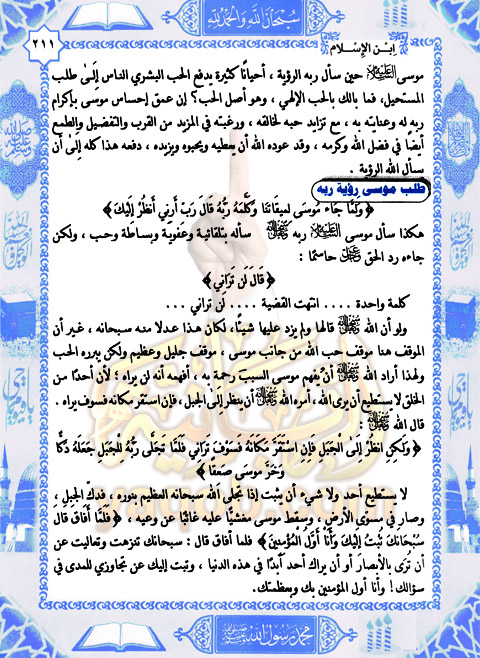 سبحان الله والحمد لله
٢١١
ابن الإسلام
موسى عليه السلام حين سأل ربه الرؤية ، أحيانًا كثيرة يدفع الحب البشري الناس إلى طلب
المستحيل، فما بالك بالحب الإلهي ، وهو أصل الحب؟ إن عمق إحساس موسى بإكرام
ربه له وعنايته به ، مع تزايد حبه لخالقه ، ورغبته في المزيد من القرب والتفضيل والطمع
أيضًا في فضل الله وكرمه ، وقد عوده الله أن يعطيه ويحبوه ويزيده ، دفعه هذا كله إلى أن
يسأل الله الرؤية .
طلب موسى رؤية ربه
﴿ وَلَمَّا جَاءَ مُوسَى لِمِيقَاتِنَا وَكَلَّمَهُ رَبُّهُ قَالَ رَبِّ أَرِنِي أَنظُرْ إِلَيْكَ ﴾
هكذا سأل موسى عليه السلام ربه سأله بتلقائية وعفوية وبساطة وحب ، ولكن
جاءه رد الحق حاسمًا :
﴿ قَالَ لَن تَرَانِي ﴾
كلمة واحدة .... انتهت القضية .... لن تراني ...
ولو أن الله قالها ولم يزد عليها شيئًا، لكان هذا عدلا منه سبحانه ، غير أن
الموقف هنا موقف حب الله من جانب موسى ، موقف جليل وعظيم ولكن يبرره الحب
ولهذا أراد الله أن يُفهم موسى السبب رحمة به ، أفهمه أنه لن يراه ؛ لأن أحدًا من
الخلق لا يستطيع أن يرى الله ، أمره الله أن ينظر إلى الجبل ، فإن استقر مكانه فسوف يراه .
قال الله :
﴿ وَلَكِنِ انظُرْ إِلَى الْجَبَلِ فَإِنِ اسْتَقَرَّ مَكَانَهُ فَسَوْفَ تَرَانِي فَلَمَّا تَجَلَّى رَبُّهُ لِلْجَبَلِ جَعَلَهُ دَكًّا
وَخَرَّ مُوسَى صَعِقًا ﴾
لا يستطيع أحد ولا شيء أن يثبت إذا تجلى الله سبحانه العظيم بنوره ، فدكّ الجبل ،
وصار في مستوى الأرض ، وسقط موسى مغشيًّا عليه غائبًا عن وعيه ، ﴿ فَلَمَّا أَفَاقَ قَالَ
سُبْحَانَكَ تُبْتُ إِلَيْكَ وَأَنَا أَوَّلُ الْمُؤْمِنِينَ ﴾ فلما أفاق قال : سبحانك تنزهت وتعاليت عن
أن ترى بالأبصار أو أن يراك أحد أبدًا في هذه الدنيا ، وتبت إليك عن تجاوزي للمدى في
سؤالك ! وأنا أول المؤمنين بك وبعظمتك.
محمد رسول الله